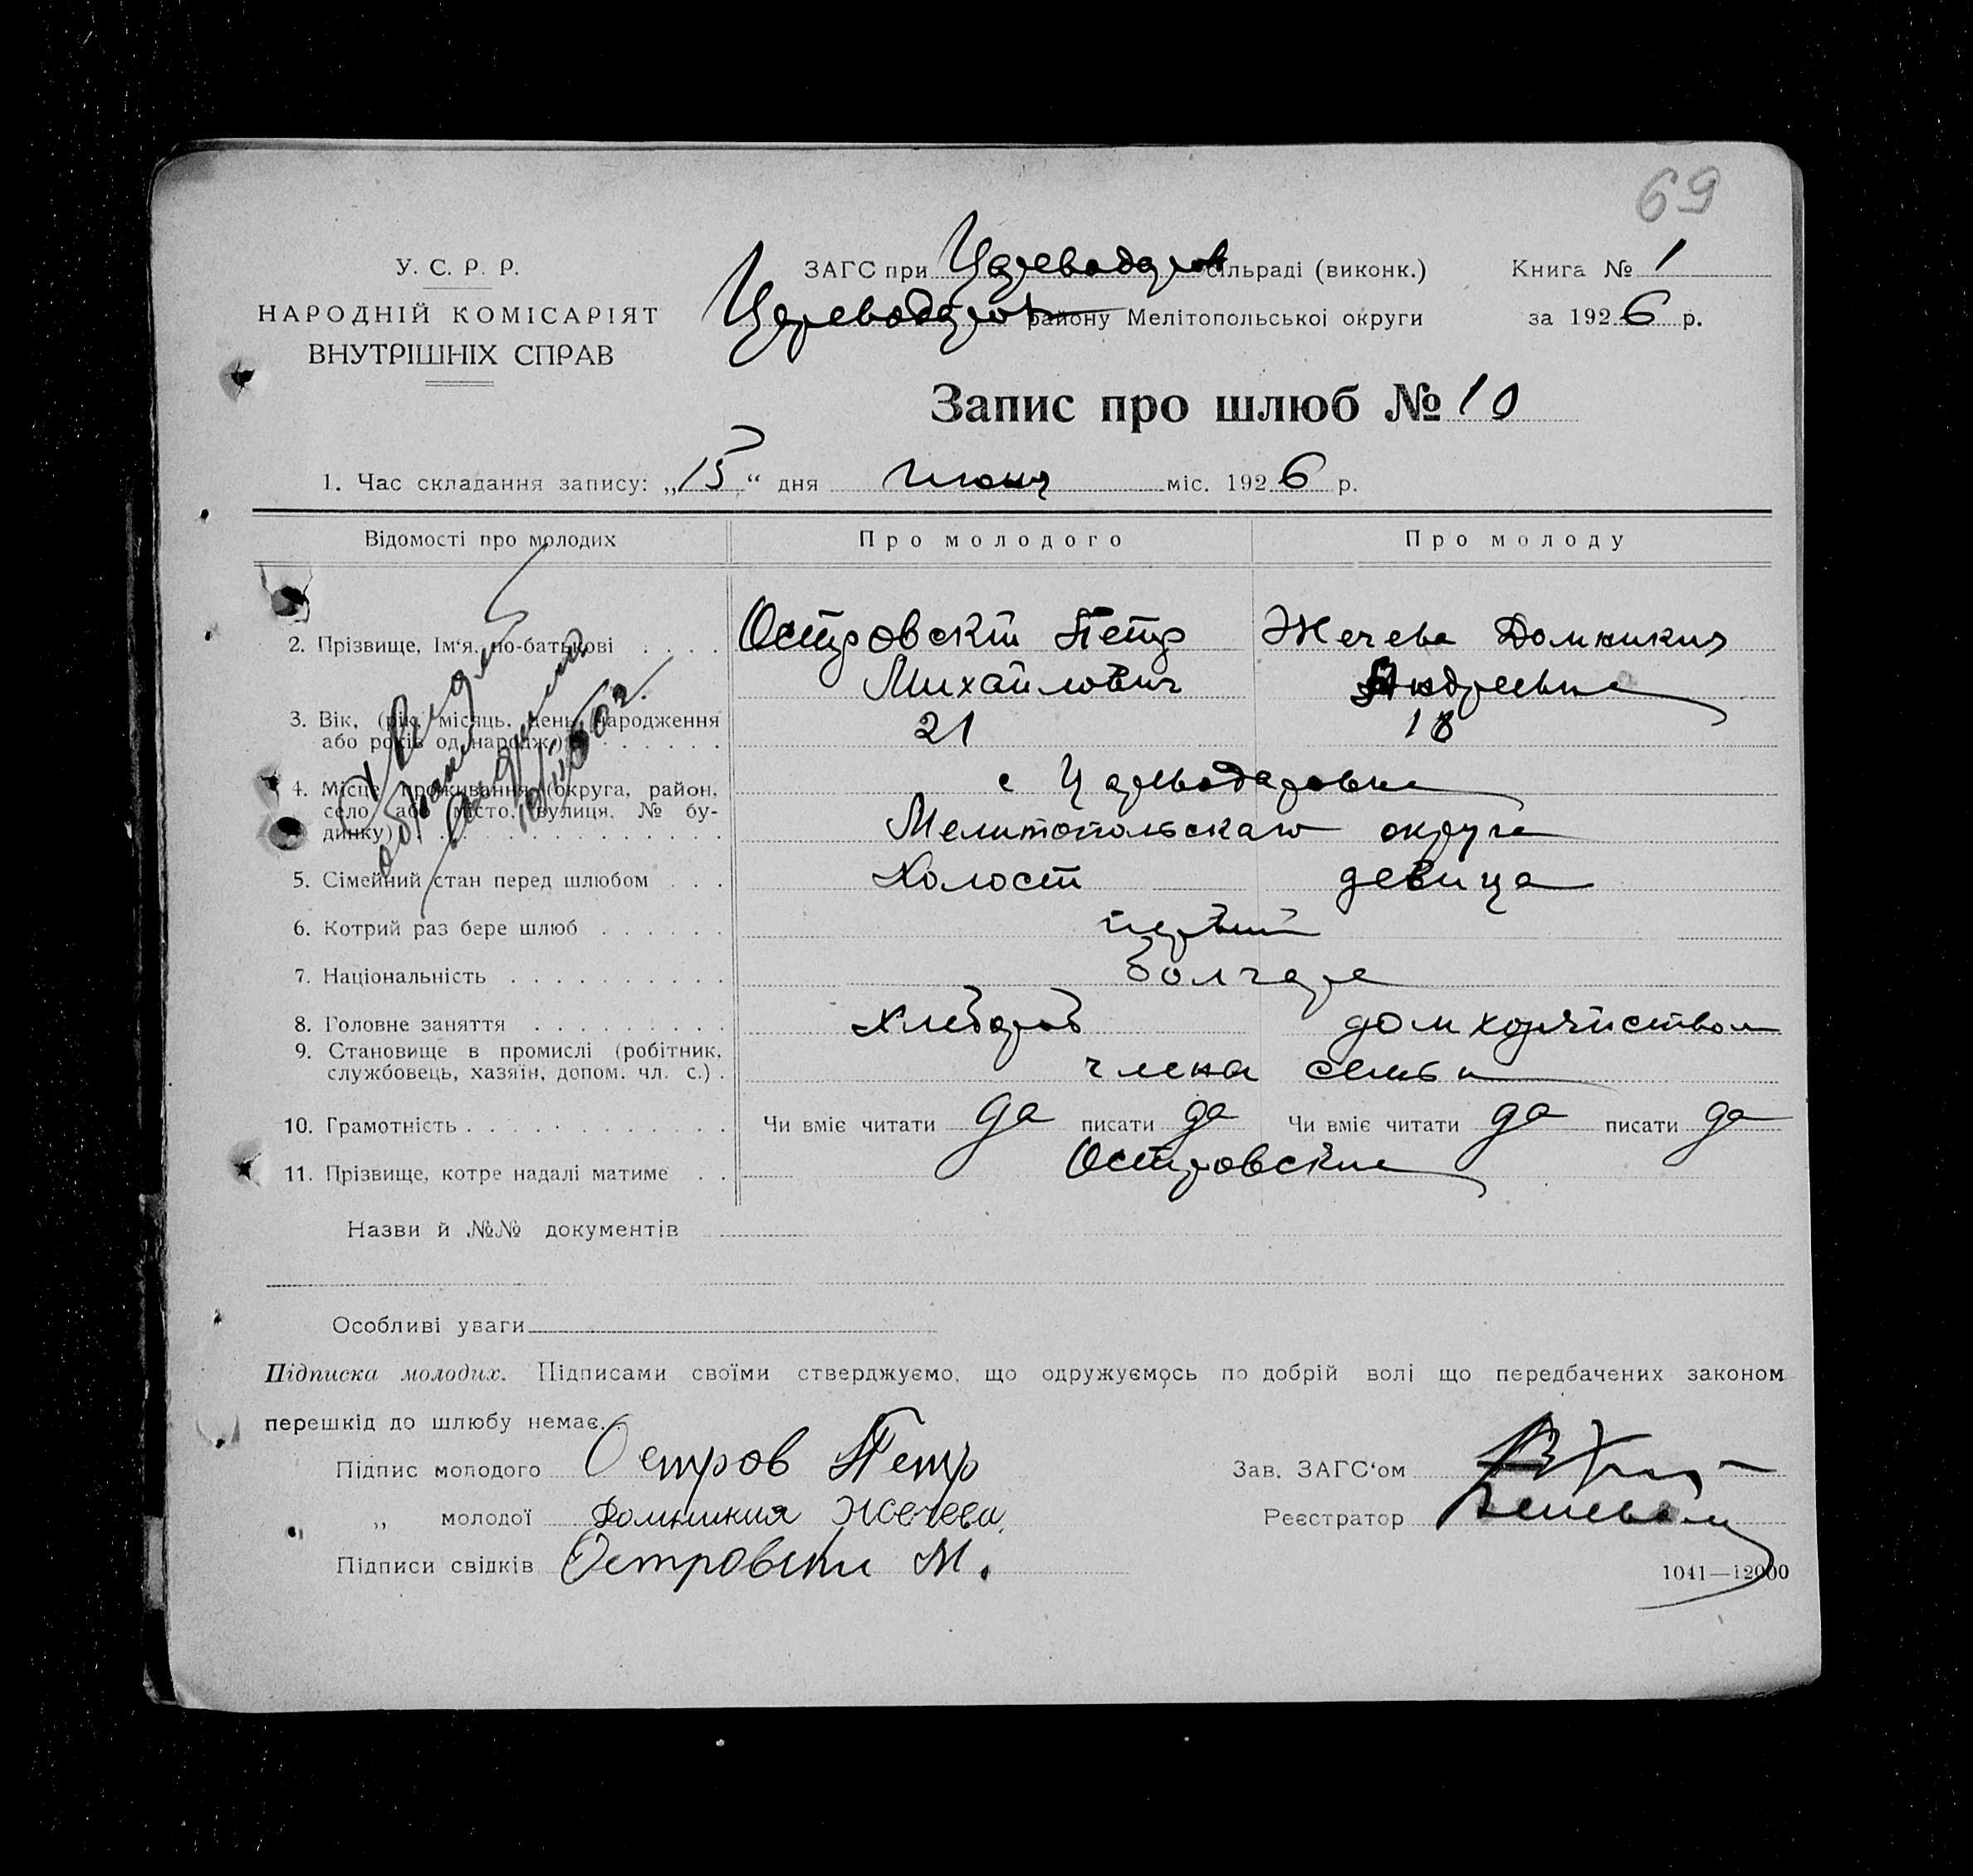 69
У. С. Р. Р.
НАРОДНІЙ КОМІСАРІЯТ
ВНУТРІШНІХ СПРАВ
ЗАГС при Цареводаров сільраді (виконк.)
Цареводаров району Мелітопольської округи
Книга № 1
за 1926 р.
Запис про шлюб № 10
1. Час складання запису: „15“ дня июня міс. 1926 р.
Відомості про молодих
Про молодого
Про молоду
2. Прізвище, Ім‘я, по-батькові
Островскій Петр
Михайлович
Жечева Домникия
Андреевна
3. Вік, (рік, місяць, день народження
або років од народж.)
21
18
4. Місце проживання (округа, район,
село або місто, вулиця, № бу-
динку)
с Цареводаровка
Мелитопольскаго округа
5. Сімейний стан перед шлюбом
Холост
девица
6. Котрий раз бере шлюб
первый
7. Національність
болгаре
8. Головне заняття
Хлебороб
9. Становище в промислі (робітник,
службовець, хазяїн, допом. чл. с.)
члена семьи
10. Грамотність
Чи вміє читати да писати да
Чи вміє читати да писати да
11. Прізвище, котре надалі матиме
Островские
Назви й №№ документів
Особливі уваги
Підписка молодих. Підписами своїми стверджуємо, що одружуємось по добрій волі що передбачених законом
перешкід до шлюбу немає.
Підпис молодого Остров Петр
„ молодої Домникия Жечева
Підписи свідків Островски М.
Зав. ЗАГС‘ом
Реєстратор
1041—12000